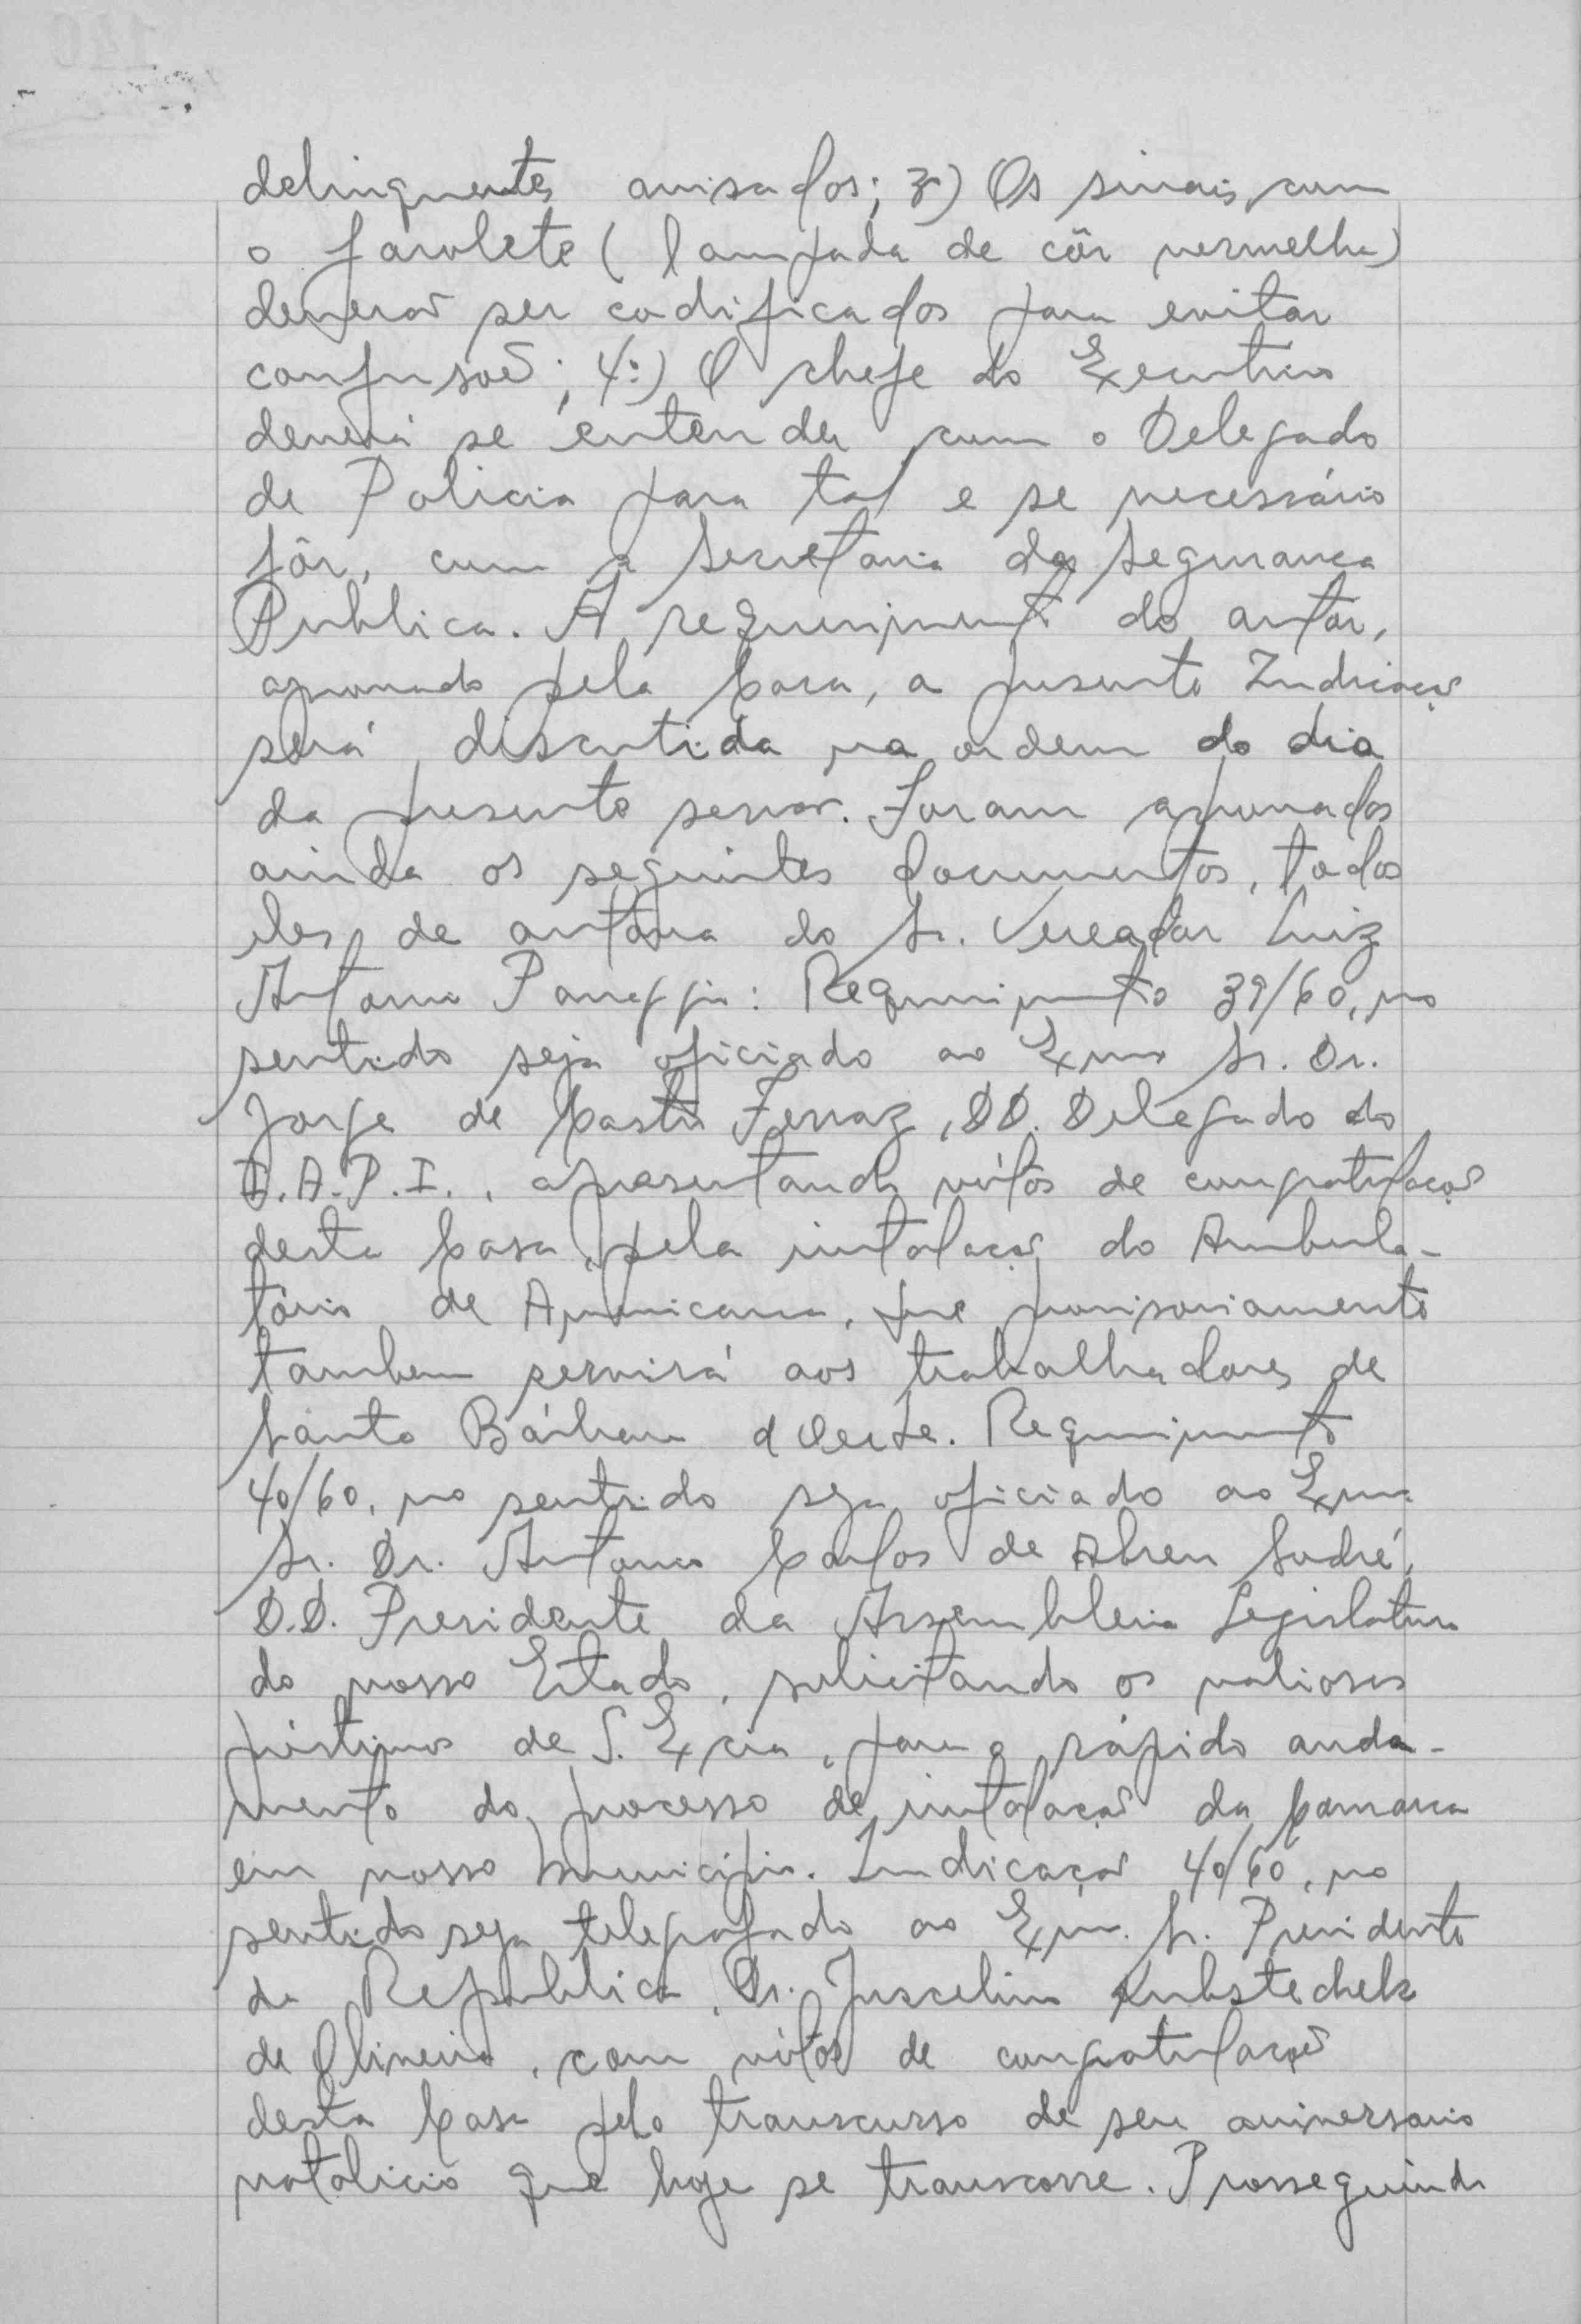 delinquentes avisados; 3º) Os sinais com
o farolete (lampada de côr vermelha)
deverão ser codificados para evitar
confusoẽ; 4º) O chefe do Executivo
deverá se entender com o Delegado
de Policia para tal e se necessário
fôr, com a Secretaria da Segurança
Publica. A requerimento do autor,
aprovado pela Casa, a presente Indicação
será discutida na ordem do dia
da presente sessão. Foram aprovados
ainda os seguintes documentos, todos
eles de autoria do Sr. Vereador Luiz
Antonio Panaggio: Requerimento 39/60, no
sentido seja oficiado ao Exmo Sr. Dr.
Jorge de Castro Ferraz, DD. Delegado do
I.A.P.I., apresentando vótos de congratulaçoẽs
desta Casa, pela instalação do Ambula-
tório de Americana, que provisoriamente
tambem servirá aos trabalhadores de
Santa Bárbara d'Oeste. Requerimento
40/60, no sentido seja oficiado ao Exmo
Sr. Dr. Antonio Carlos de Abreu Sodré,
D.D. Presidente da Assembleia Legislativa
do nosso Estado, solicitando os valiosos
préstimos de S. Excia, para o rápido anda-
mento do processo de instalação da Comarca
em nosso Municipio. Indicação 40/60, no
sentido seja telegrafado ao Exmo. Sr. Presidente
da Republica, Dr. Juscelino Kubstechek
de Oliveira, com vótos de congratulaçoẽ
desta Casa pelo transcurso de seu aniversario
natalicio que hoje se transcorre. Prosseguindo